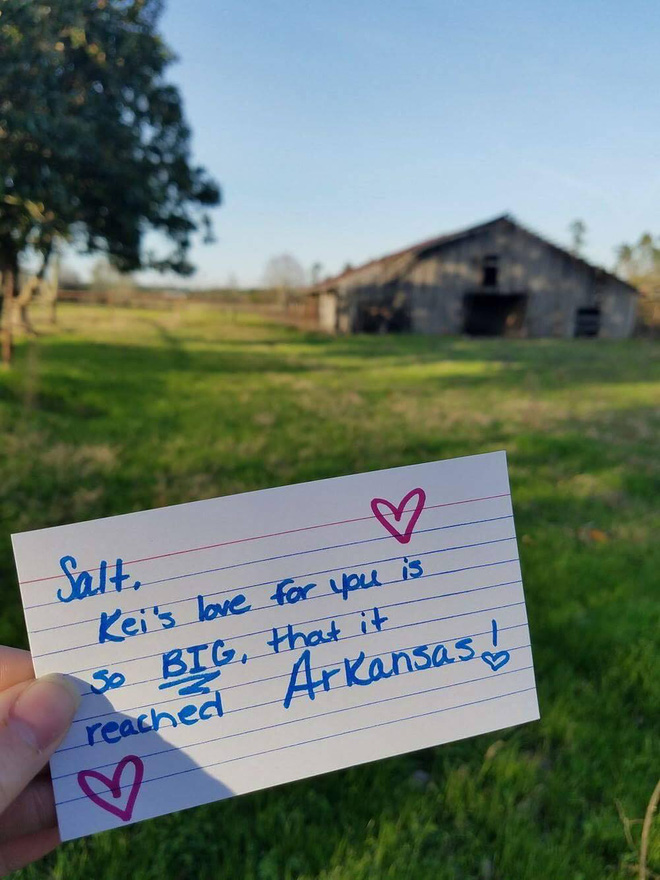 Salt,
Kei's love for you is
so BIG, that it
reached Arkansas!